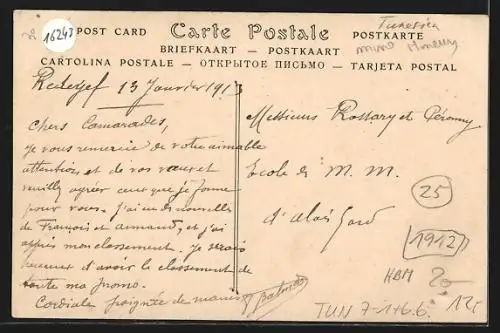 20
16243
POST CARD Carte Postale POSTKARTE
BRIEFKAART — POSTKAART
CARTOLINA POSTALE — ОТКРЫТОЕ ПИСЬМО — TARJETA POSTAL
Redeyef 13 Janvier 1913
Chers Camarades,
Je vous remercie de votre aimable
attention et de vos vœux et
veuillez agréer ceux que je forme
pour vous. J'ai eu des nouvelles
de François et Armand, et j'ai
appris mon classement. Je serais
heureux d'avoir le classement de
toute ma promo.
Cordiale poignée de mains
Messieurs Rossary et Géromy
Ecole des M. M.
d'Alais Gard
25
1912
HBM 20
12,
TUN 7-1+6.6.